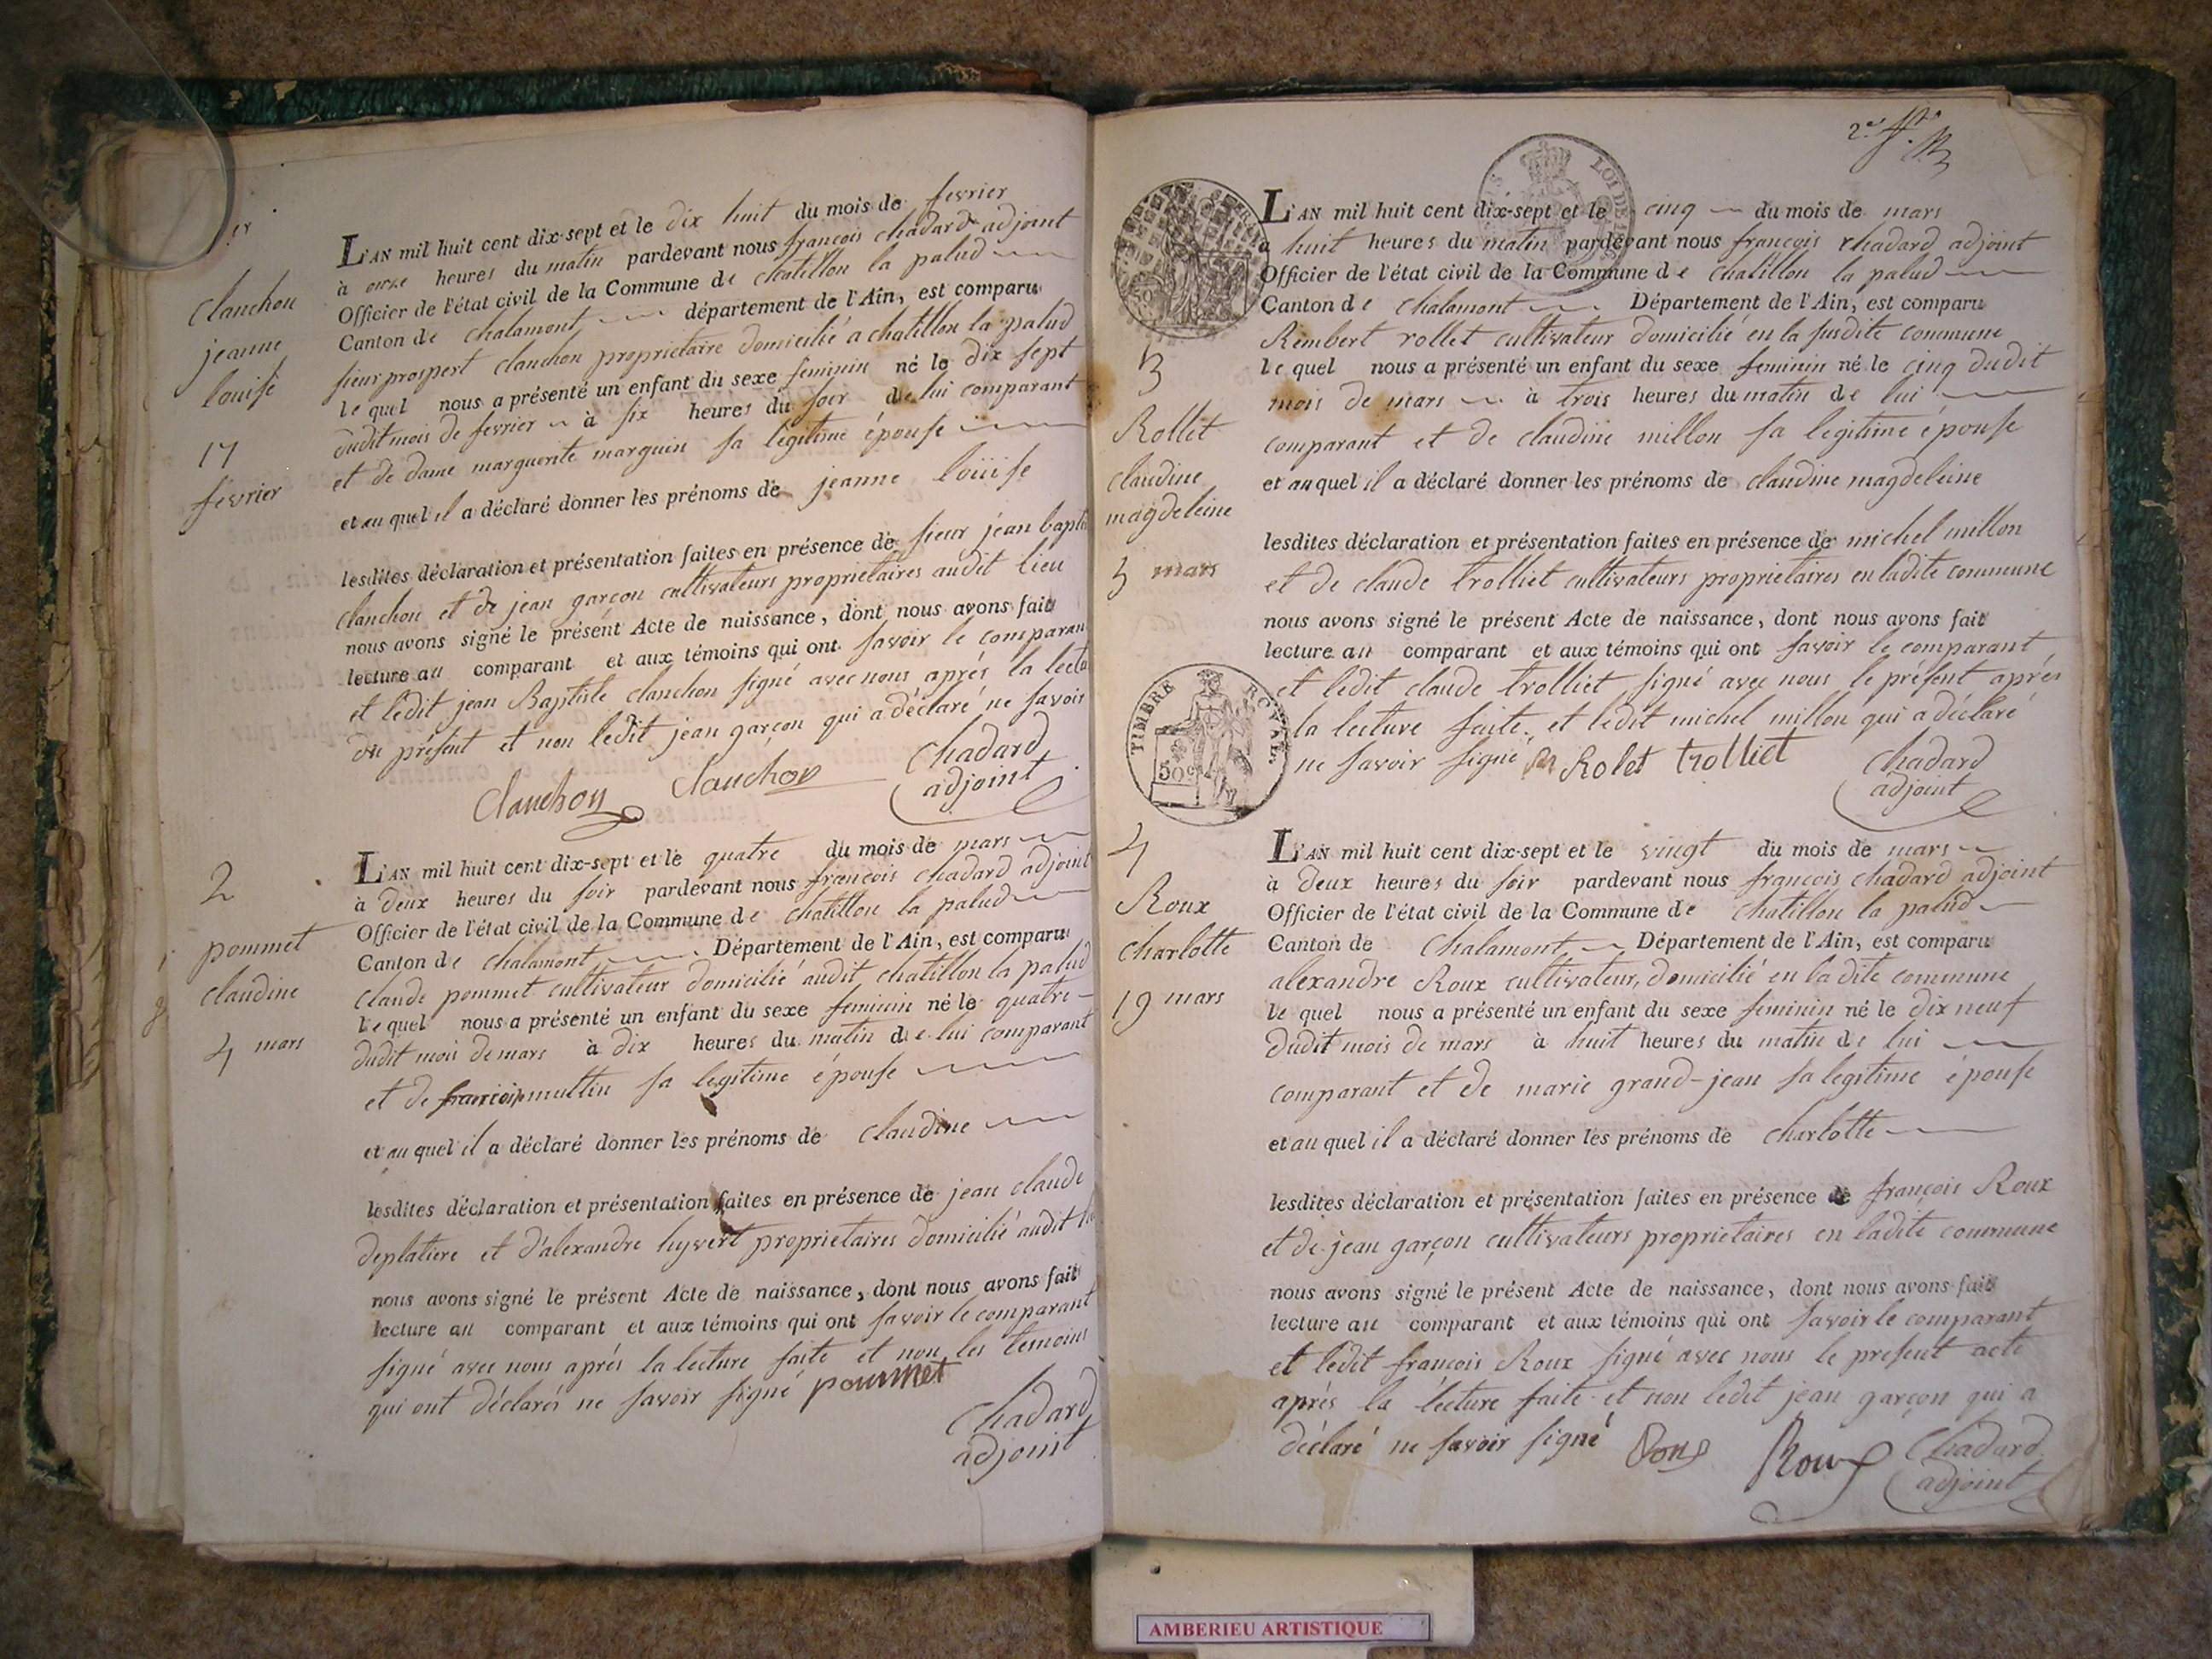 1er
clanchon
jeanne
louise
17
fevrier
L'AN mil huit cent dix-sept et le dix huit du mois de fevrier
à onze heures du matin pardevant nous françois chadard adjoint
Officier de l'état civil de la Commune de chatillon la palud
Canton de chalamont département de l'Ain, est comparu
sieur prospert clanchon proprietaire domicilié a chatillon la palud
lequel nous a présenté un enfant du sexe feminin né le dix sept
dudit mois de fevrier à six heures du soir de lui comparant
et de dame marguerite marguin sa legitime épouse
et au quel il a déclaré donner les prénoms de jeanne louise
lesdites déclaration et présentation faites en présence de sieur jean bapti
clanchon et de jean garçon cultivateurs proprietaires audit lieu
nous avons signé le présent Acte de naissance, dont nous avons fait
lecture au comparant et aux témoins qui ont savoir le comparan
et ledit jean Baptiste clanchon signé avec nous aprés la lectu
du présent et non ledit jean garçon qui a déclaré ne savoir
Clanchon Clanchon Chadard
adjoint
2
pommet
claudine
4 mars
L'AN mil huit cent dix-sept et le quatre du mois de mars
à deux heures du soir pardevant nous françois chadard adjoint
Officier de l'état civil de la Commune de chatillon la palud
Canton de chalamont Département de l'Ain, est comparu
claude pommet cultivateur domicilié audit chatillon la palud
lequel nous a présenté un enfant du sexe feminin né le quatre
dudit mois de mars à dix heures du matin de lui comparant
et de muttin sa legitime épouse
et au quel il a déclaré donner les prénoms de claudine
lesdites déclaration et présentation faites en présence de jean claude
deplatiere et d'alexandre hyvert proprietaires domicilié audit
nous avons signé le présent Acte de naissance, dont nous avons fait
lecture au comparant et aux témoins qui ont savoir le comparant
signé avec nous aprés la lecture faite et non les temoins
qui ont déclarés ne savoir signé pommet
Chadard
adjoint
2e
3
Rollet
claudine
magdeleine
5 mars
L'AN mil huit cent dix-sept et le cinq du mois de mars
à huit heures du matin pardevant nous françois chadard adjoint
Officier de l'état civil de la Commune de chatillon la palud
Canton de chalamont Département de l'Ain, est comparu
Rembert rollet cultivateur domicilié en la susdite commune
lequel nous a présenté un enfant du sexe feminin né le cinq dudit
mois de mars à trois heures du matin de lui
comparant et de claudine millon sa legitime épouse
et au quel il a déclaré donner les prénoms de claudine magdeleine
lesdites déclaration et présentation faites en présence de michel millon
et de claude trolliet cultivateurs proprietaires en ladite commune
nous avons signé le présent Acte de naissance, dont nous avons fait
lecture au comparant et aux témoins qui ont savoir le comparant
et ledit claude trolliet signé avec nous le présent aprés
la lecture faite et ledit michel millon qui a déclaré
ne savoir signé Rolet trolliet Chadard
adjoint
TIMBRE ROYAL
50c
4
Roux
Charlotte
19 mars
L'AN mil huit cent dix-sept et le vingt du mois de mars
à deux heures du soir pardevant nous françois chadard adjoint
Officier de l'état civil de la Commune de chatillon la palud
Canton de chalamont Département de l'Ain, est comparu
alexandre Roux cultivateur, domicilié en la dite commune
lequel nous a présenté un enfant du sexe feminin né le dix neuf
dudit mois de mars à huit heures du matin de lui
comparant et de marie grand-jean sa legitime épouse
et au quel il a déclaré donner les prénoms de charlotte
lesdites déclaration et présentation faites en présence de françois Roux
et de jean garçon cultivateurs proprietaires en ladite commune
nous avons signé le présent Acte de naissance, dont nous avons fait
lecture au comparant et aux témoins qui ont savoir le comparant
et ledit françois Roux signé avec nous le present acte
aprés la lecture faite et non ledit jean garçon qui a
déclaré ne savoir signé Roux Roux Chadard
adjoint
AMBERIEU ARTISTIQUE